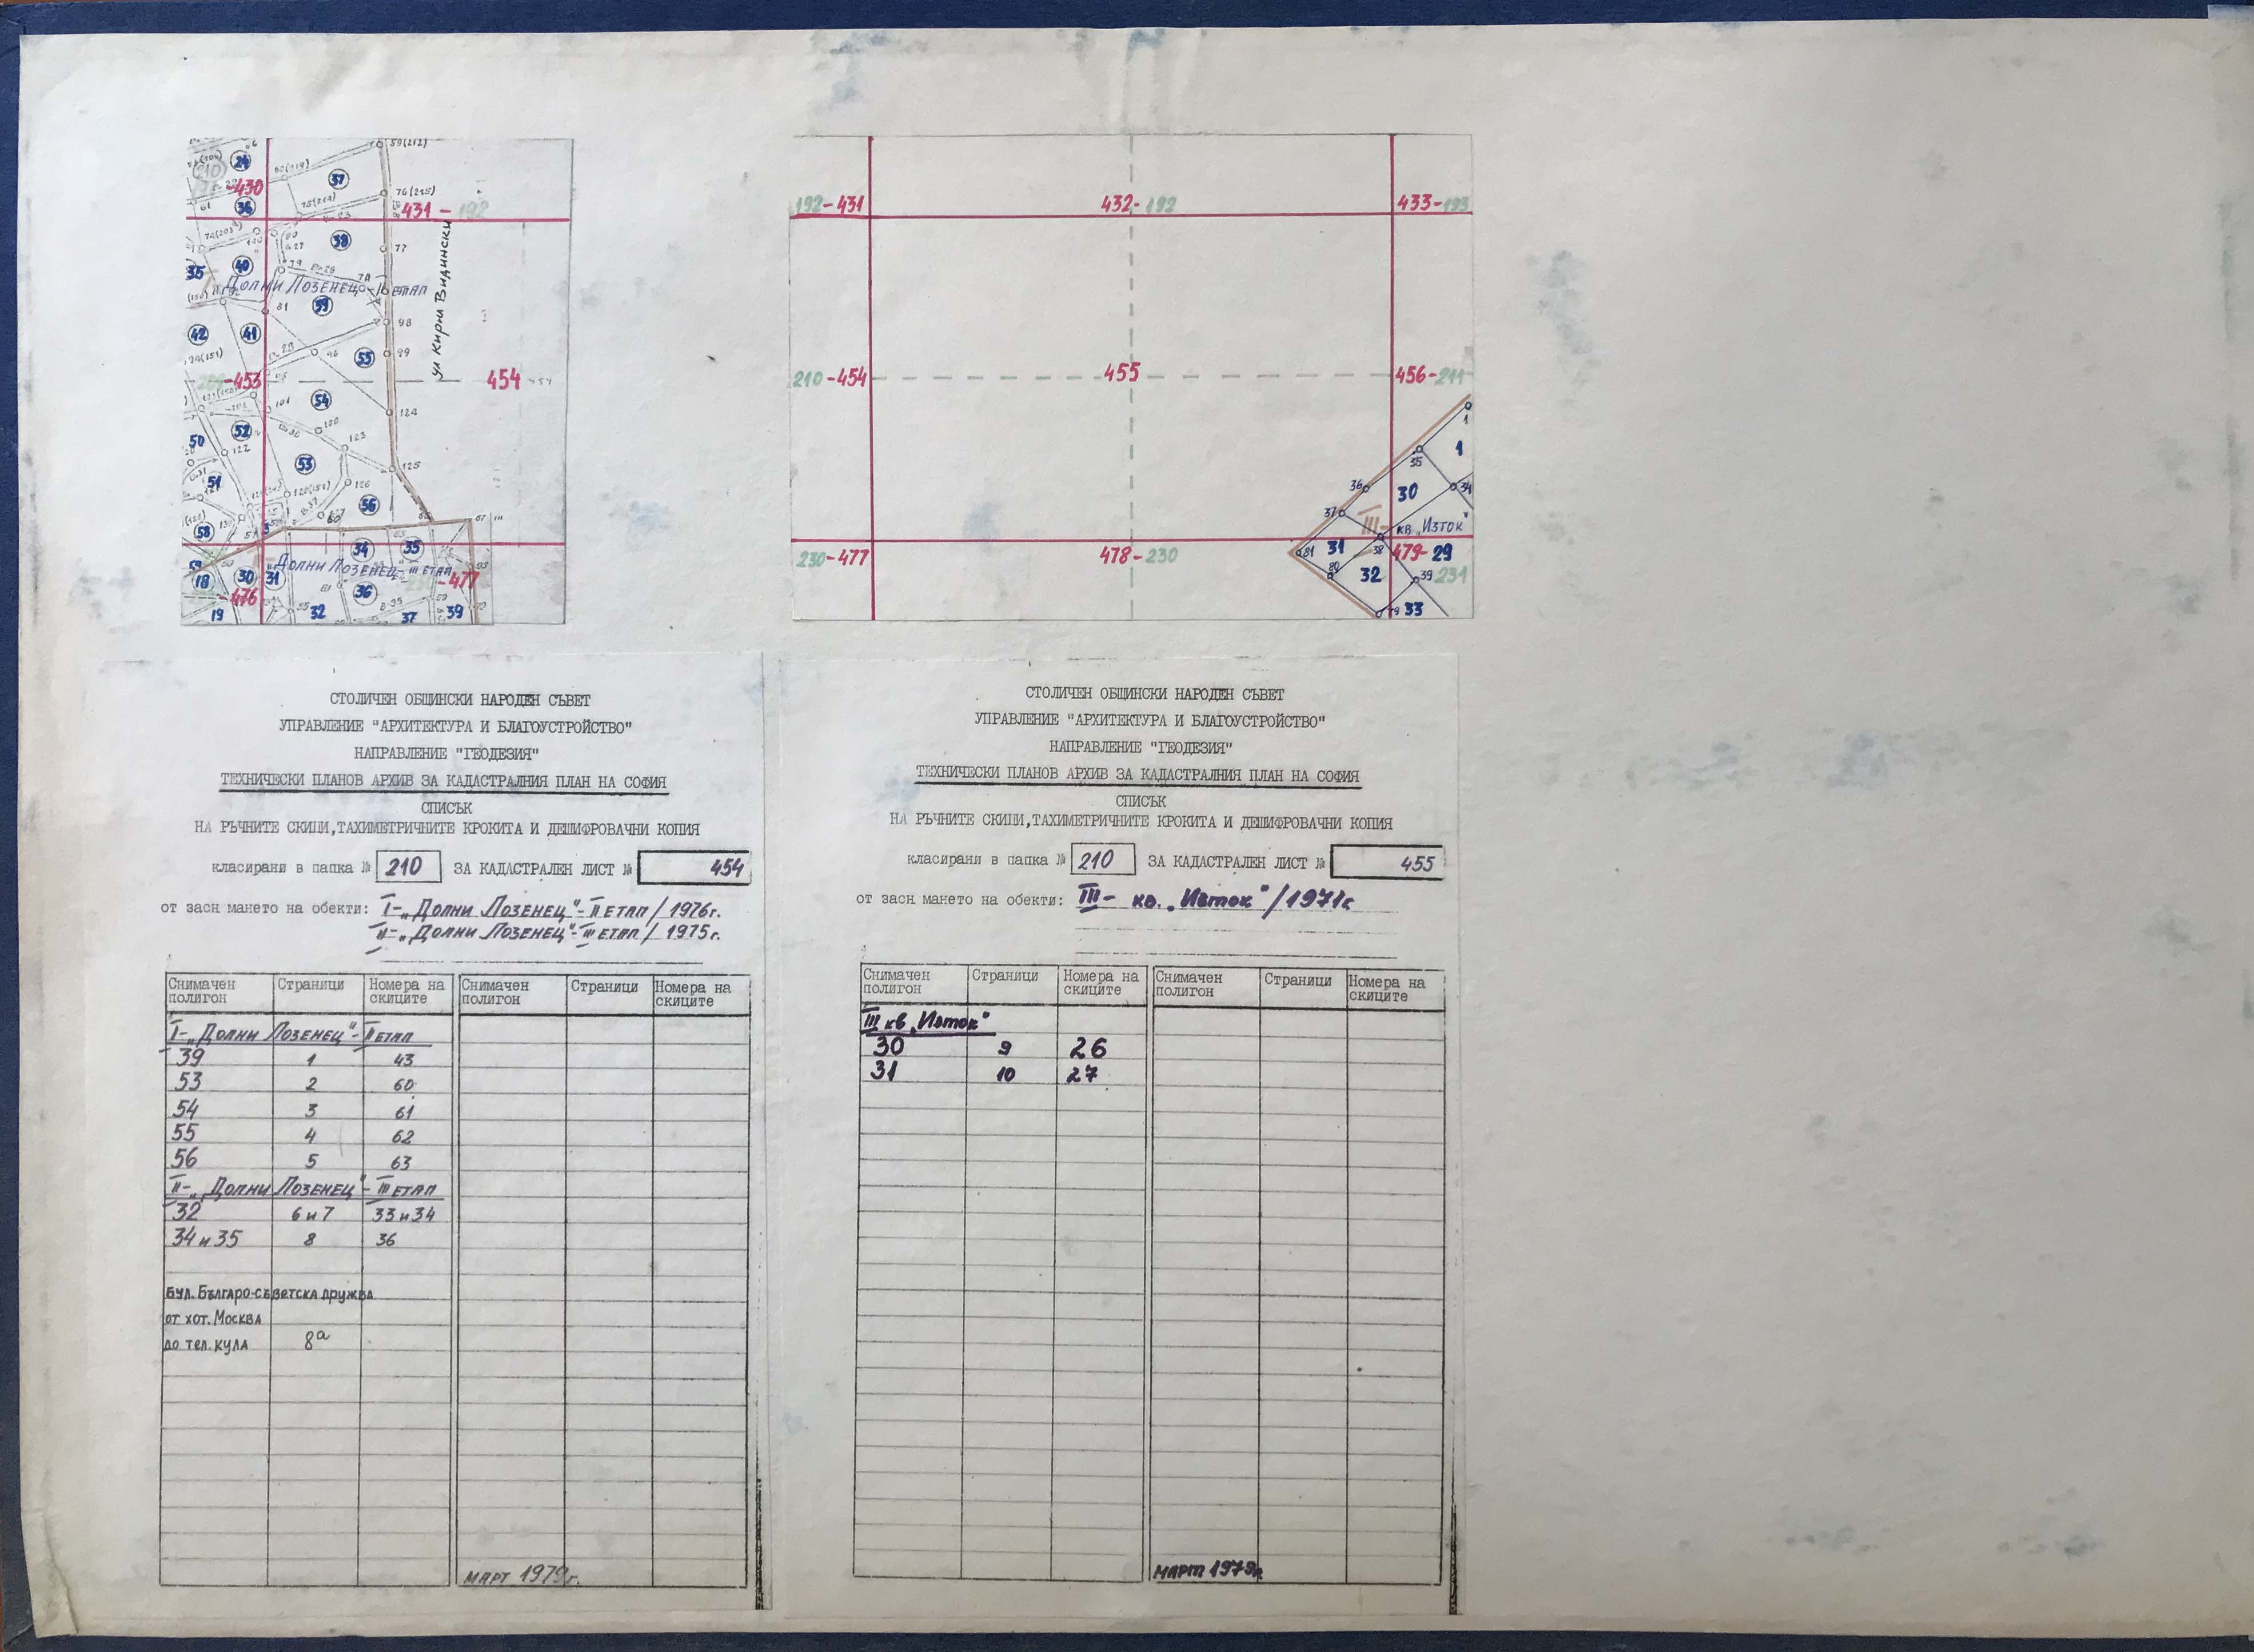 59(212)
24
37
76(215)
430
36
61
75(214)
431 - 192
38
77
ул Кирил Видински
35
40
79
Долни Лозенец - II етап
39
81
98
42
41
96
99
55
-453
454
54
101
124
50
52
122
123
53
125
126
51
56
58
67
34
35
Долни Лозенец - III етап
18
30
31
-477
-476
36
19
32
37
39
192-431
432-192
433-193
210-454
455
456-211
1
35
1
36
30
34
37
III-
кв. „Изток"
230-477
478-230
81
31
38
479-
29
80
32
39
231
79
33
СТОЛИЧЕН ОБЩИНСКИ НАРОДЕН СЪВЕТ
УПРАВЛЕНИЕ "АРХИТЕКТУРА И БЛАГОУСТРОЙСТВО"
НАПРАВЛЕНИЕ "ГЕОДЕЗИЯ"
ТЕХНИЧЕСКИ ПЛАНОВ АРХИВ ЗА КАДАСТРАЛНИЯ ПЛАН НА СОФИЯ
СПИСЪК
НА РЪЧНИТЕ СКИЦИ,ТАХИМЕТРИЧНИТЕ КРОКИТА И ДЕШИФРОВАЧНИ КОПИЯ
класирани в папка № 210 ЗА КАДАСТРАЛЕН ЛИСТ № 454
от засн мането на обекти: I-„Долни Лозенец"- II етап / 1976г.
II-„Долни Лозенец"- III етап / 1975г.
Снимачен полигон Страници Номера на скиците Снимачен полигон Страници Номера на скиците
I-„Долни Лозенец"- II етап
39 1 43
53 2 60
54 3 61
55 4 62
56 5 63
II-„Долни Лозенец"- III етап
32 6 и 7 33 и 34
34 и 35 8 36
Бул. Българо-съветска дружба
от хот. Москва
до тел. кула 8а
МАРТ 1979г.
СТОЛИЧЕН ОБЩИНСКИ НАРОДЕН СЪВЕТ
УПРАВЛЕНИЕ "АРХИТЕКТУРА И БЛАГОУСТРОЙСТВО"
НАПРАВЛЕНИЕ "ГЕОДЕЗИЯ"
ТЕХНИЧЕСКИ ПЛАНОВ АРХИВ ЗА КАДАСТРАЛНИЯ ПЛАН НА СОФИЯ
СПИСЪК
НА РЪЧНИТЕ СКИЦИ,ТАХИМЕТРИЧНИТЕ КРОКИТА И ДЕШИФРОВАЧНИ КОПИЯ
класирани в папка № 210 ЗА КАДАСТРАЛЕН ЛИСТ № 455
от засн мането на обекти: III- кв. „Изток" /1971г
Снимачен полигон Страници Номера на скиците Снимачен полигон Страници Номера на скиците
III кв „Изток"
30 9 26
31 10 27
МАРТ 1979г.